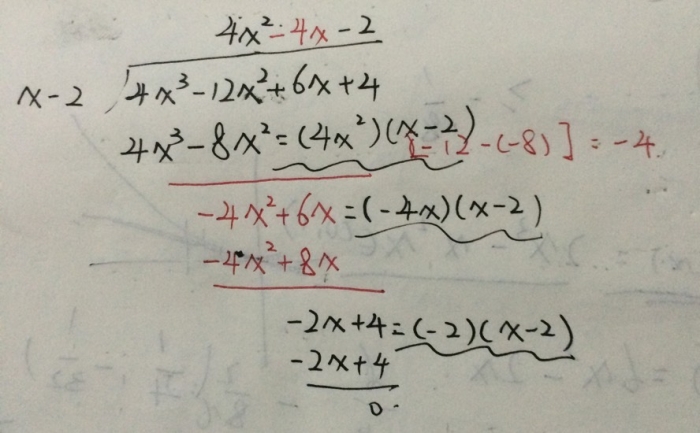 4x²-4x-2
x-2 4x³-12x²+6x+4
4x³-8x²=(4x²)(x-2) [-12-(-8)]=-4.
-4x²+6x=(-4x)(x-2)
-4x²+8x
-2x+4=(-2)(x-2)
-2x+4
0.